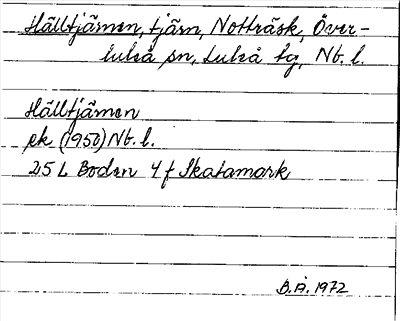 Hälltjärnen, tjärn, Notträsk, Över-
luleå sn, Luleå tg, Nb. l.
Hälltjärnen
ek (1950) Nb. l.
25 L Boden 4 f Skatamark
B.Å. 1972